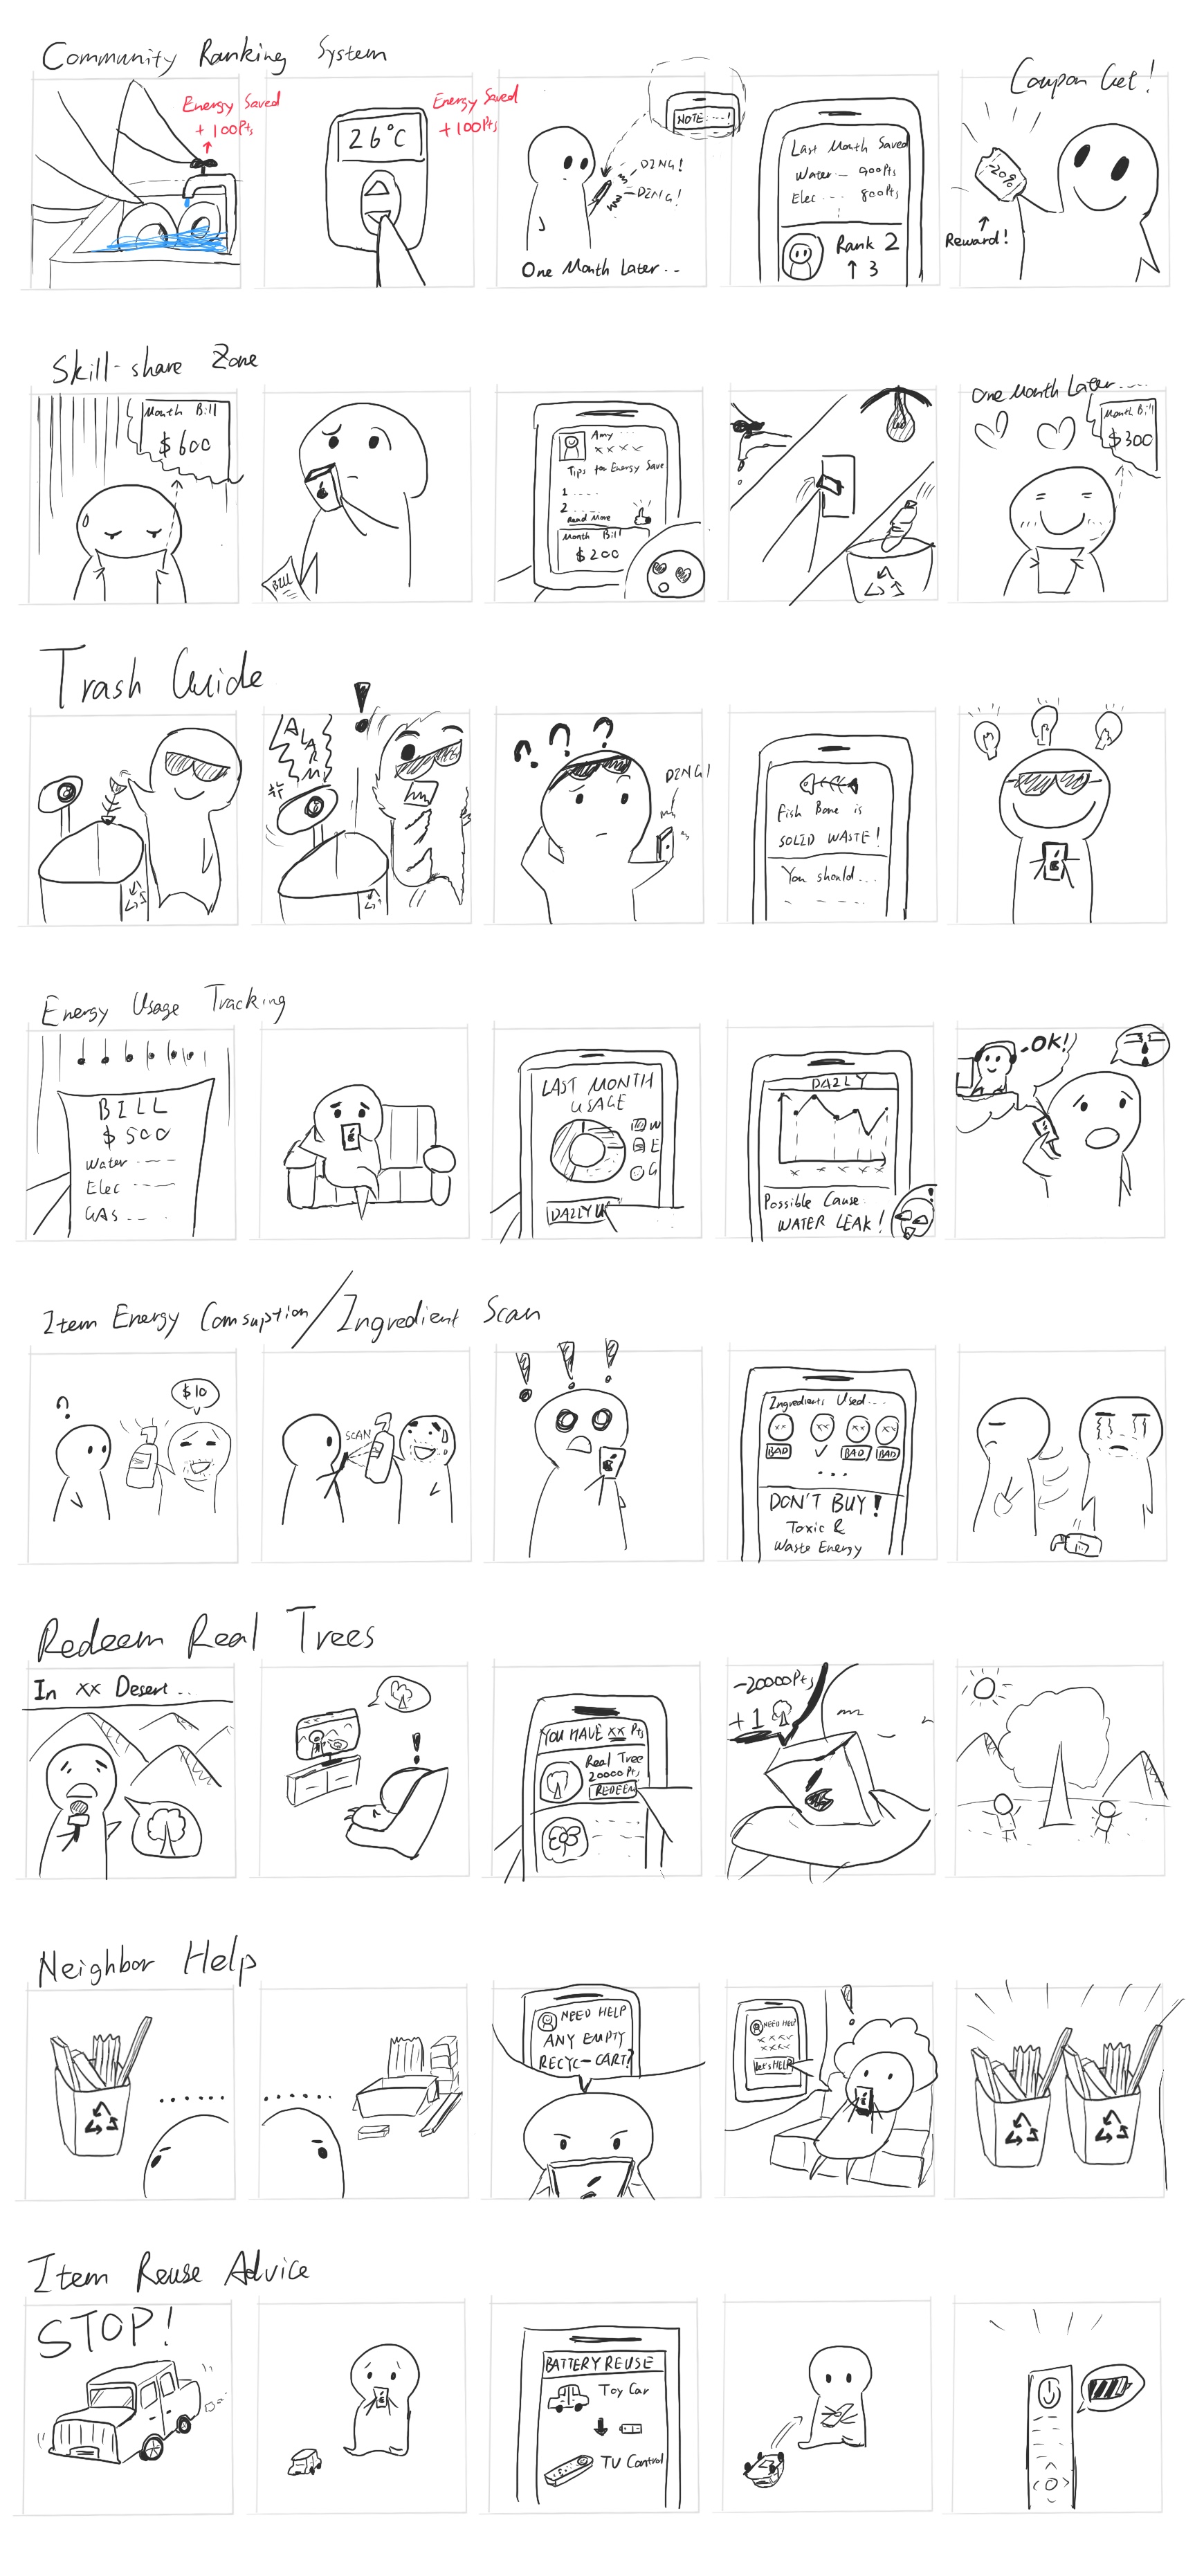 Community Ranking System
Energy Saved
+ 100Pts
26°C
Energy Saved
+ 100Pts
NOTE ...!
DING!
DING!
One Month Later..
Last Month Saved
Water — 900Pts
Elec ... 800Pts
Rank 2
↑ 3
Coupon Get!
-20%
Reward!
Skill-share Zone
Month Bill
$600
BILL
Amy ...
××××
Tips for Energy Save
1 ....
2 ....
Read More
Month Bill
$200
One Month Later....
Month Bill
$300
Trash Guide
ALARM!
? ? ?
DING!
Fish Bone is
SOLID WASTE!
You should...
Energy Usage Tracking
BILL
$500
Water ----
Elec ----
GAS ...
LAST MONTH
USAGE
W
E
G
DAILY
DAILY
× × × × ×
Possible Cause
WATER LEAK!
-OK!
Item Energy Comsuption/Ingredient Scan
?
$10
SCAN
! ! !
Ingredients Used....
×× ×× ×× ××
BAD ✓ BAD BAD
...
DON'T BUY!
Toxic &
Waste Energy
Redeem Real Trees
In xx Desert ..
!
YOU HAVE xx Pts
Real Tree
20000Pts
REDEEM
-20000Pts
+1
Neighbor Help
......
......
NEED HELP
ANY EMPTY
RECYC-CART?
!
NEED HELP
××××
××××
Let's HELP
Item Reuse Advice
STOP!
BATTERY REUSE
Toy Car
TV Control